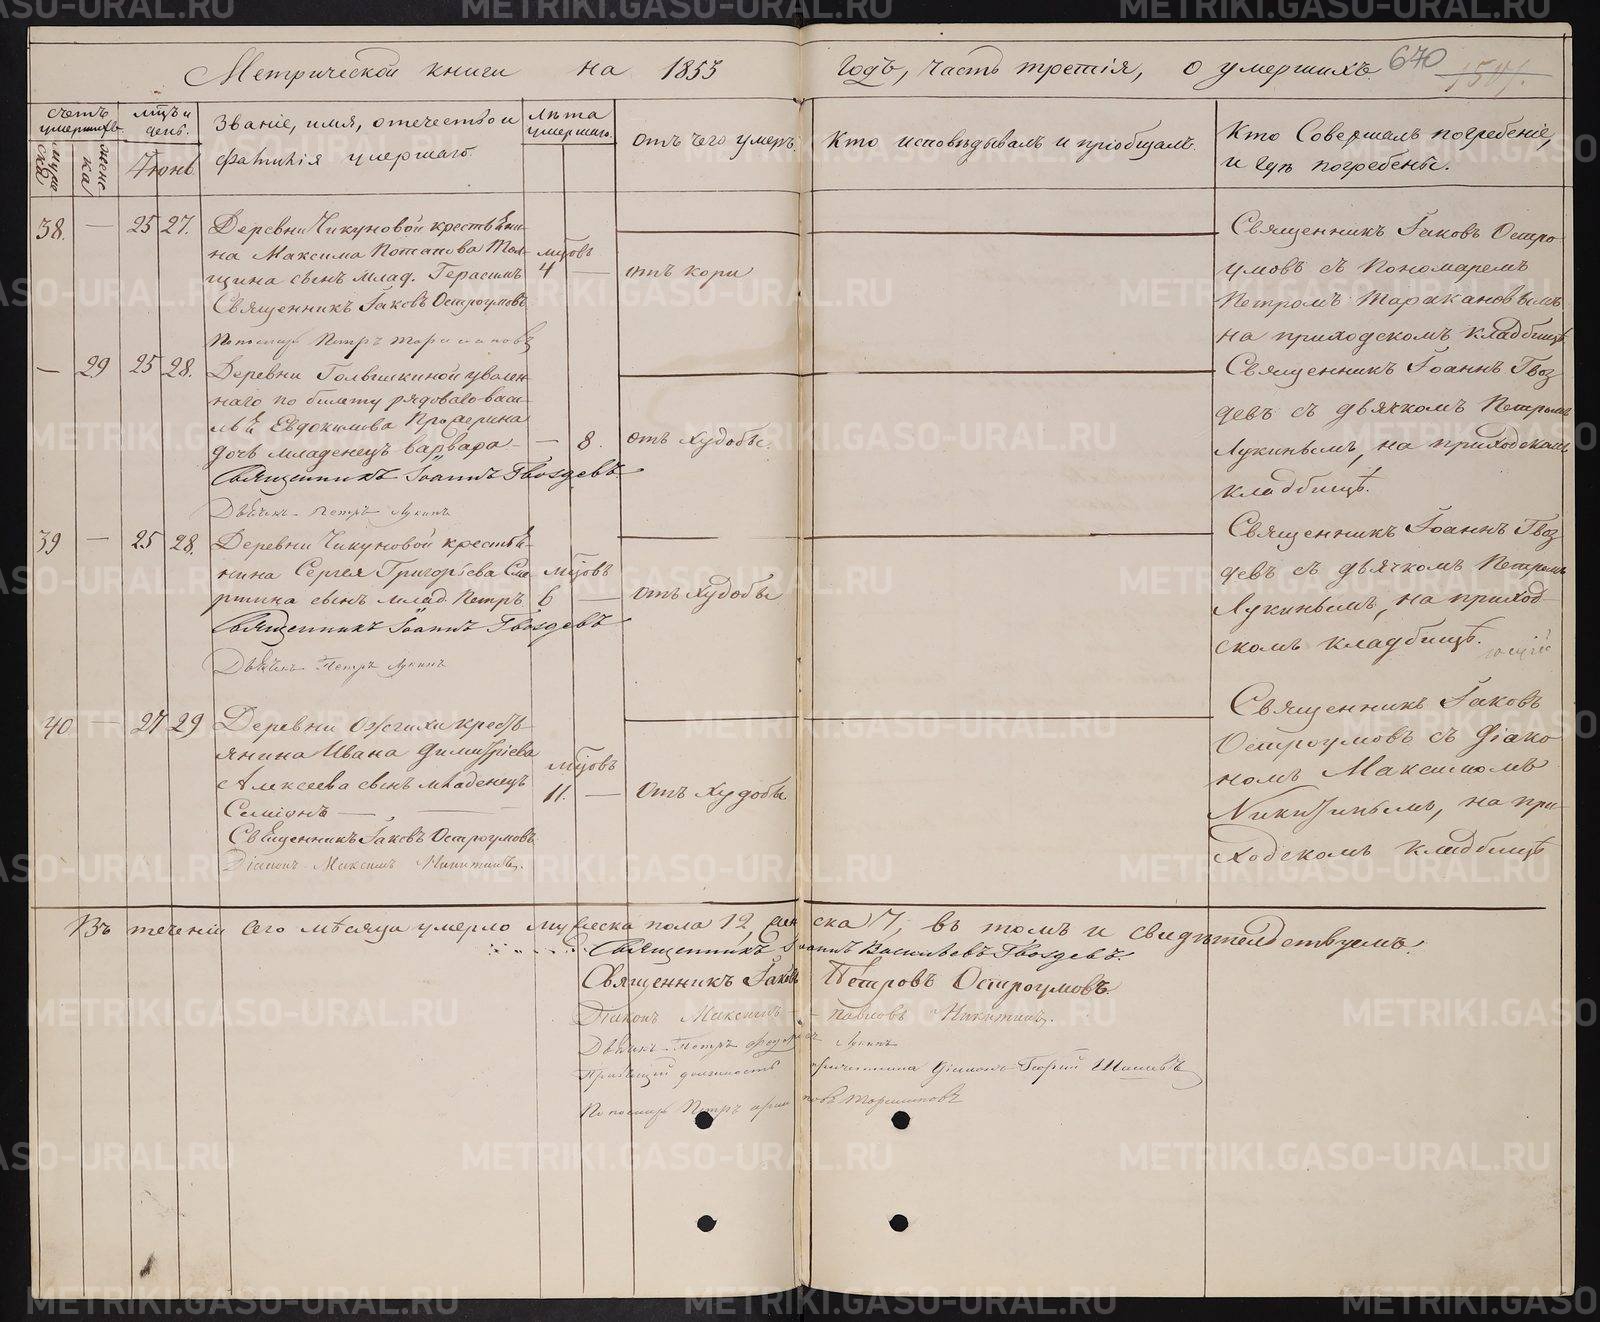 Метрической книги на 1853 годъ, часть третія, о умершихъ. 640
счетъ умершихъ
мужеска
женска
мѣцъ и день.
Июнь
Званіе, имя, отечество и
фамилія умершаго.
Лѣта умершаго.
Отъ чего умеръ.
Кто исповѣдывалъ и пріобщалъ.
Кто Совершалъ погребеніе,
и гдѣ погребены.
38. — 25 27.
Деревни Чикуновой крестьяни-
на Максима Потапова
сынъ млад. Герасимъ
Священникъ Іаковъ Остроумовъ
Пономарь Петръ Таракановъ
мѣцовъ
4 —
отъ кори
Священникъ Іаковъ Остро
умовъ съ Пономаремъ
Петромъ Таракановымъ
на приходскомъ кладбищѣ
— 29 25 28.
Деревни уволен-
наго по билету рядоваго Васи-
лья Евдокимова
дочь младенецъ Варвара
Священникъ Іоаннъ Гвоздевъ.
Дьячекъ Петръ Лукинъ
— 8.
отъ худобы.
Священникъ Іоаннъ Гвоз
девъ съ дьячкомъ Петромъ
Лукинымъ, на приходскомъ
кладбищѣ.
39 — 25 28.
Деревни Чикуновой крестья-
нина Сергея Григорьева
сынъ млад. Петръ
Священникъ Іоаннъ Гвоздевъ
Дьячекъ Петръ Лукинъ
мѣцовъ
6 —
Отъ худобы
Священникъ Іоаннъ Гвоз
девъ съ дьячкомъ Петромъ
Лукинымъ, на приход-
скомъ кладбищѣ.
40 — 27 29
Деревни Ожегихи кресть-
янина Ивана Димитріева
Алексеева сынъ младенецъ
Симіонъ —
Священникъ Іаковъ Остроумовъ
Діаконъ Максимъ Никитинъ.
мѣцовъ
11. —
Отъ худобы.
Священникъ Іаковъ
Остроумовъ съ Діако
номъ Максимомъ
Никитинымъ, на при-
ходскомъ кладбищѣ
Въ теченіи сего мѣсяца умерло мужеска пола 12, женска 7, въ томъ и свидѣтельствуемъ:
Священникъ Іоаннъ Васильевъ Гвоздевъ.
Священникъ Іаковъ Петровъ Остроумовъ.
Діаконъ Максимъ Павловъ Никитинъ.
Дьячекъ Петръ Лукинъ
должность причетника Діаконъ Георгій
Пономарь Петръ Таракановъ
METRIKI.GASO-URAL.RU